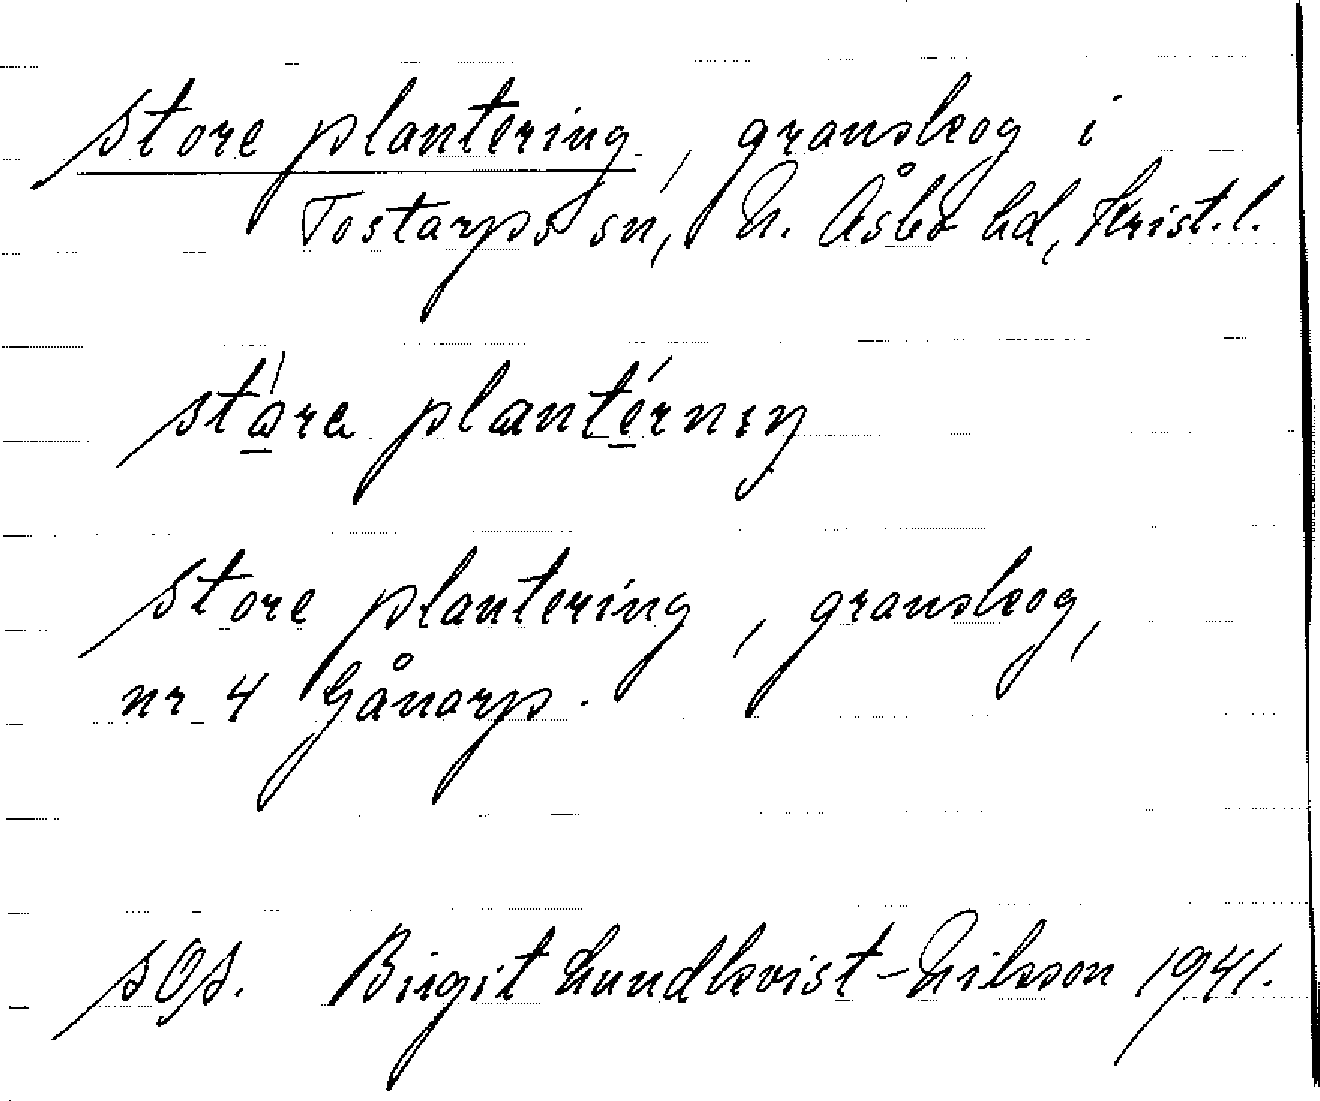 store plantering, granskog i
Tostarps sn, N. Åsbo hd, Krist. l.
store plantering, granskog,
nr 4 Gånarp.
Birgit Lundkvist-Nilsson 1941.